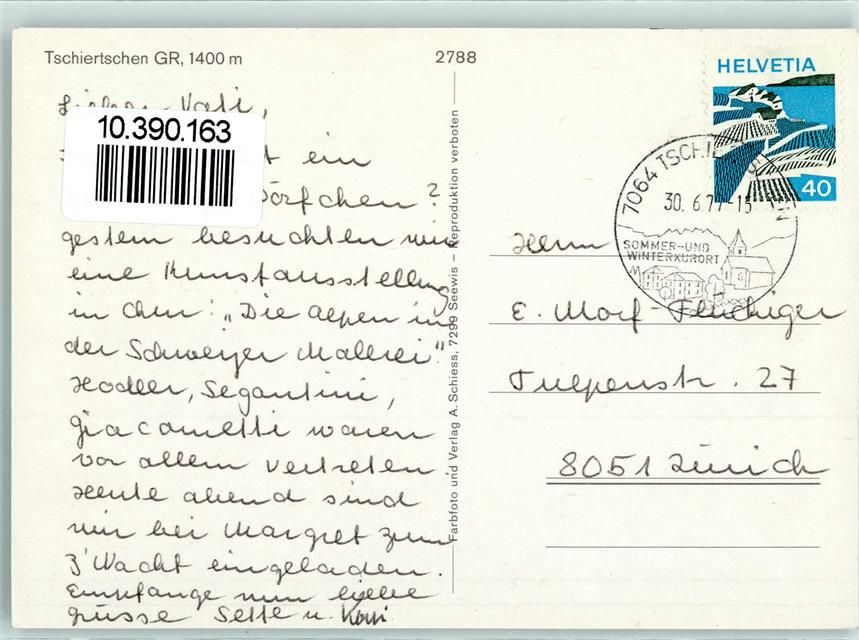 Tschiertschen GR, 1400 m
2788
HELVETIA
40
7064 TSCHIERTSCHEN
30. 6.77-15
SOMMER-UND
WINTERKURORT
10.390.163
Lieber Vati,
ein
Dörfchen?
gestern besuchten wir
eine Kunstausstellung
in Chur: "Die alpen in
der Schweizer Mallrei"
Hodler, Segantini,
Giacometti waren
vor allem vertreten
Heute abend sind
wir bei Margret zum
z'Nacht eingeladen.
Empfange nun liebe
grüsse
Farbfoto und Verlag A. Schiess, 7299 Seewis – Reproduktion verboten
Herrn
E. Morf-Flückiger
Tulpenstr. 27
8051 Zürich